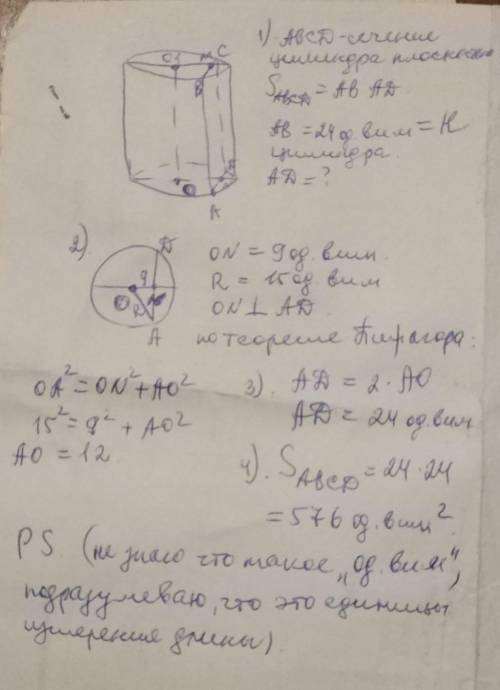 1) ABCD-сечение
цилиндра плоскостью
S ABCD = AB AD
AB = 24 од. вим = H
цилиндра.
AD = ?
O1 M C
B
D
O
A
2).
ON = 9 од. вим.
R = 15 од вим
ON ⊥ AD.
по теореме Пифагора:
D
9
O N
R
A
OA² = ON² + AO²
15² = 9² + AO²
AO = 12
3). AD = 2 · AO
AD = 24 од. вим
4). S ABCD = 24 · 24
= 576 од. вим².
PS. (не знаю что такое „од. вим“,
подразумеваю, что это единицы
измерения длины).